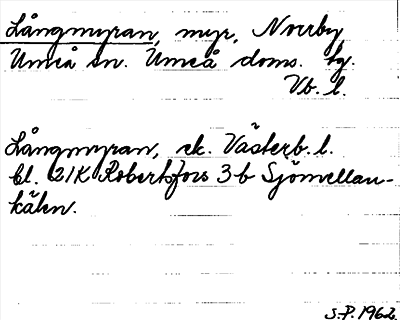 Långmyran, myr, Norrby
Umeå sn. Umeå doms. hg.
Vb. l.
Långmyran, ek. Västerb. l.
bl. 21K Robertsfors 3 b Sjömellan-
kälen.
S.P. 1962